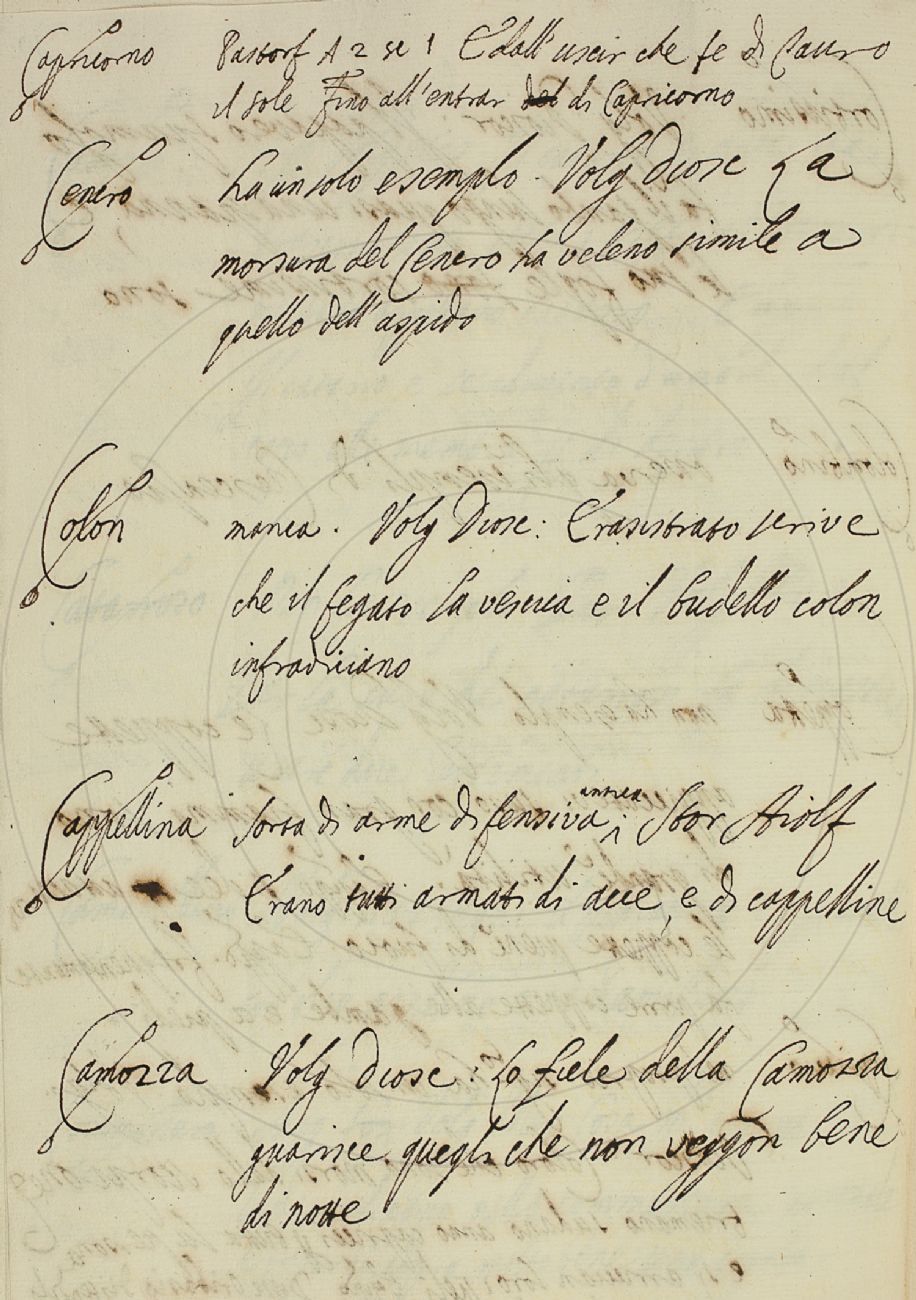 Capricorno Pastorf A 2 sc 1 E dall'uscir che fe di Tauro
il sole Fino all'entrar del di Capricorno
Cenero ha un solo esemplo. Volg Diosc La
morsura del Cenero ha veleno simile a
quello dell'aspido
Colon manca. Volg Diosc: Erasistrato scrive
che il fegato la vescica e il budello colon
infradiciano
Cappellina sorta di arme difensiva antica: Stor Aiolf
Erano tutti armati di acce, e di cappelline
Camozza Volg Diosc: Lo fiele della Camozza
guarisce quegli che non veggon bene
di notte